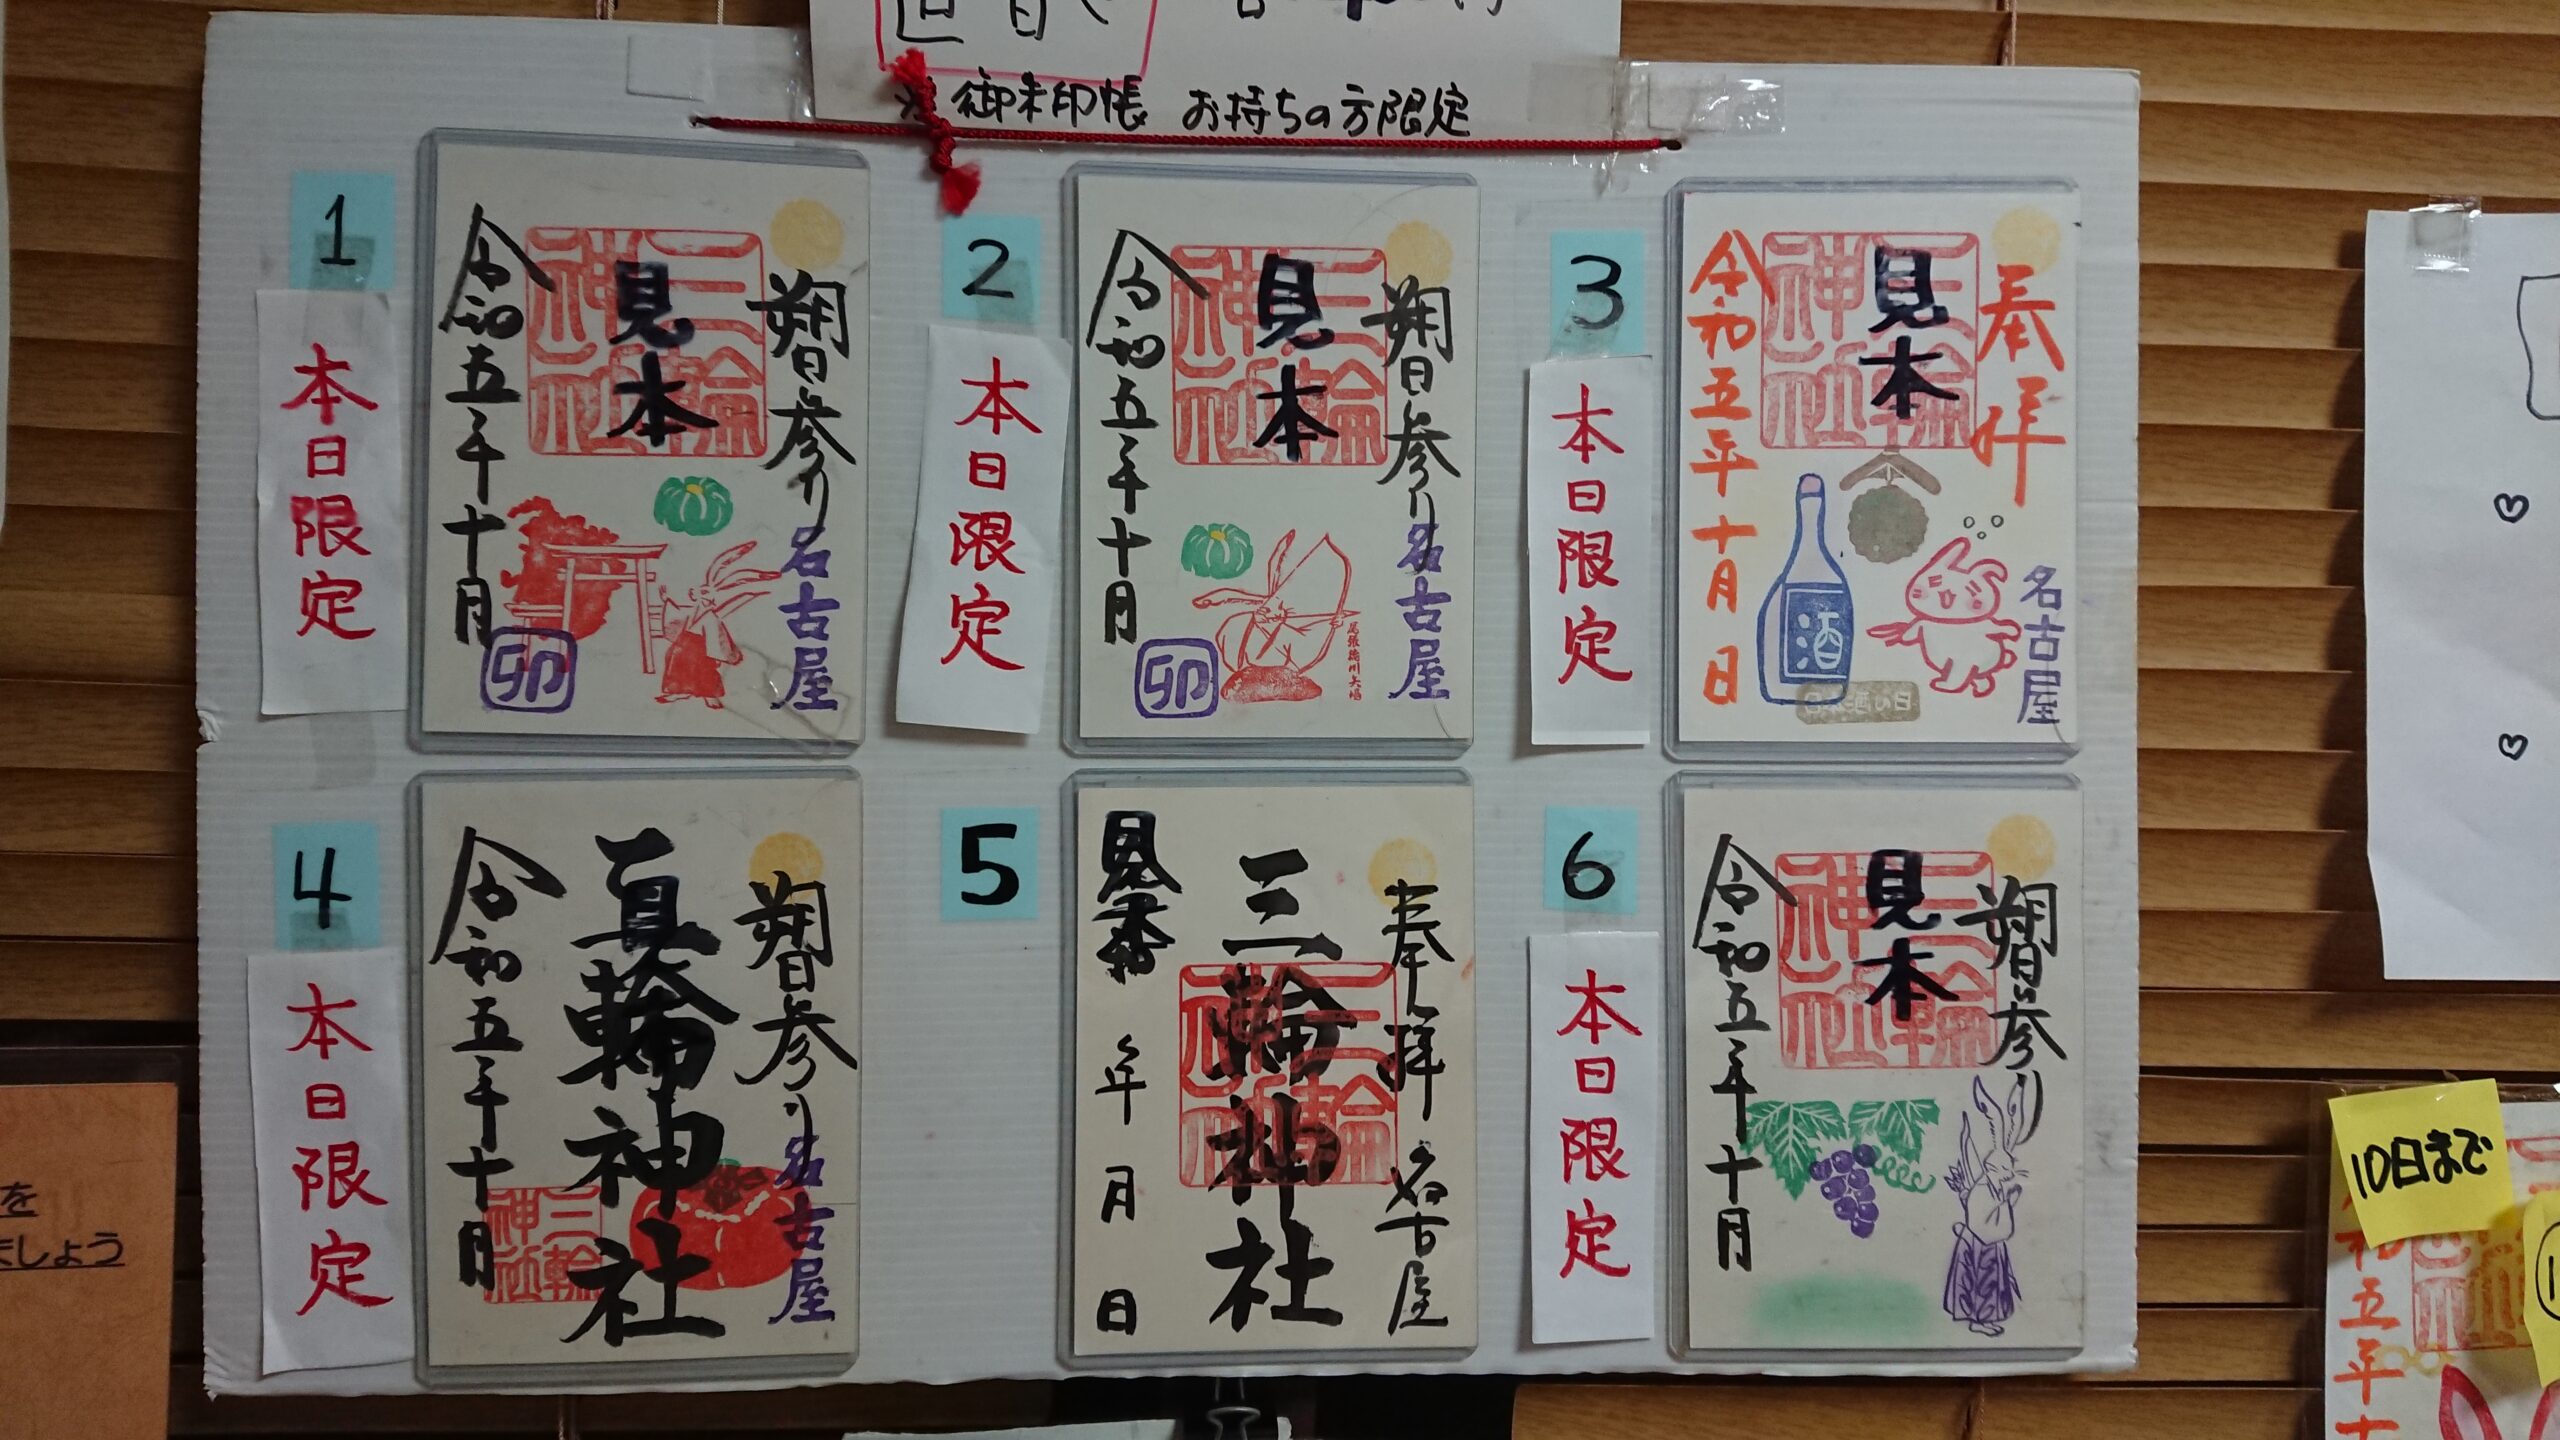 ※御朱印帳 お持ちの方限定
1
本日限定
朔日参り
名古屋
三輪神社
見本
令和五年十月
卯
2
本日限定
朔日参り
名古屋
三輪神社
見本
尾張徳川矢場
令和五年十月
卯
3
本日限定
奉拝
名古屋
三輪神社
見本
酒
日本酒の日
令和五年十月日
4
本日限定
朔日参り
名古屋
三輪神社
三輪神社
見
令和五年十月
5
奉拝 名古屋
三輪神社
三輪神社
見本
年 月 日
6
本日限定
朔日参り
三輪神社
見本
令和五年十月
10日まで
和五年十
を
ましょう